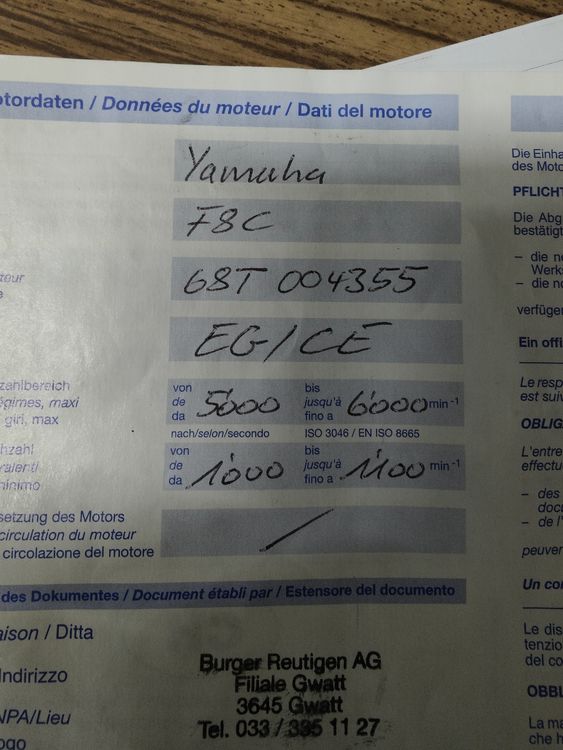 tordaten / Données du moteur / Dati del motore
Yamaha
F8C
68T 004355
EG/CE
von
de
da
5'000
bis
jusqu'à
fino a
6'000 min⁻¹
nach/selon/secondo ISO 3046 / EN ISO 8665
von
de
da
1'000
bis
jusqu'à
fino a
1'100 min⁻¹
teur
zahlbereich
égimes, maxi
giri, max
hzahl
ralenti
minimo
setzung des Motors
circulation du moteur
circolazione del motore
/
des Dokumentes / Document établi par / Estensore del documento
aison / Ditta
Indirizzo
NPA/Lieu
ogo
Burger Reutigen AG
Filiale Gwatt
3645 Gwatt
Tel. 033 / 335 11 27
Die Einha
des Moto
PFLICHT
Die Abg
bestätigt
– die n
Werks
– die no
verfüge
Ein offi
Le resp
est suiv
OBLIG
L'entre
effectu
– des
doc
– de l'
peuver
Un cor
Le dis
tenzio
del co
OBBL
La ma
che h